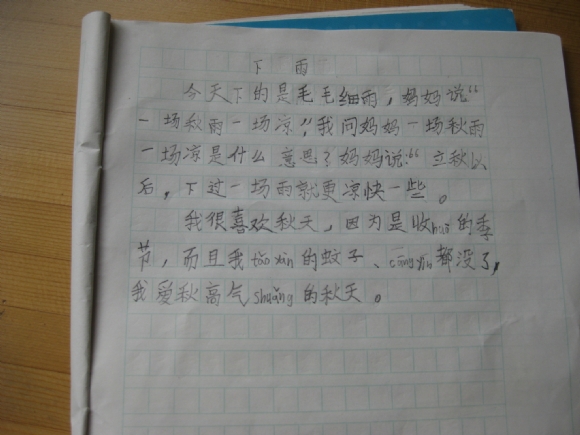 下雨
今天下的是毛毛细雨，妈妈说“
一场秋雨一场凉！”我问妈妈一场秋雨
一场凉是什么意思？妈妈说：“立秋以
后，下过一场雨就更凉快一些。
我很喜欢秋天，因为是收huò的季
节，而且我tǎo yàn的蚊子、cāng yíng都没了，
我爱秋高气shuǎng的秋天。